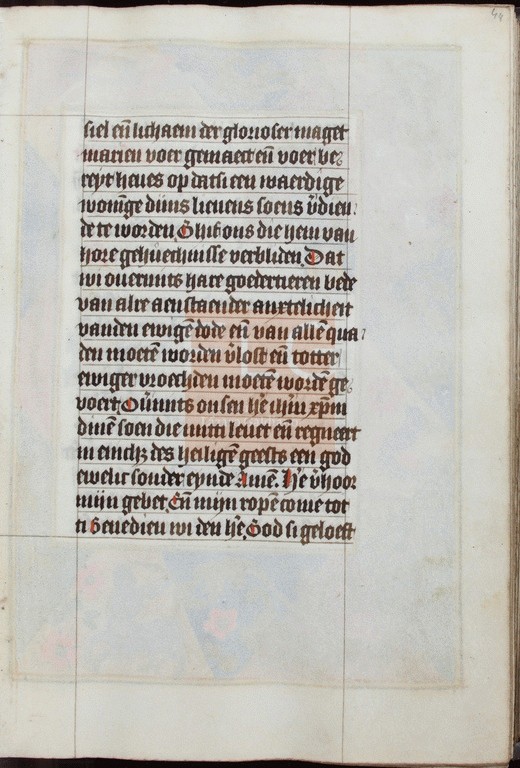 49
siel eñ lichaem der glorioser maget
marien voer gemaect eñ voer be
reyt heues op datsi een waerdige
woninge dijns lieuens soens v̄dien
de te worden. Ghif ons die hem van
hore gehuechnisse verbliden. Dat
wi ouermits hare goedertieren bede
van alre aenstaender anxtelicheit
vanden ewigē dode eñ van allē qua
den moetē worden v̄lost eñ totter
ewiger vroechden moetē wordē ge
voert. Ou̅mits onsen hē ihm̅ xp̅m
dinē soen die mitti leuet eñ regneert
in einch3 des heiligē geests een god
ewelic sonder eynde Amē. Hē v̄hoor
mijn gebet. Eñ mijn ropē come tot
ti Benedien wi den hē. God si geloeft